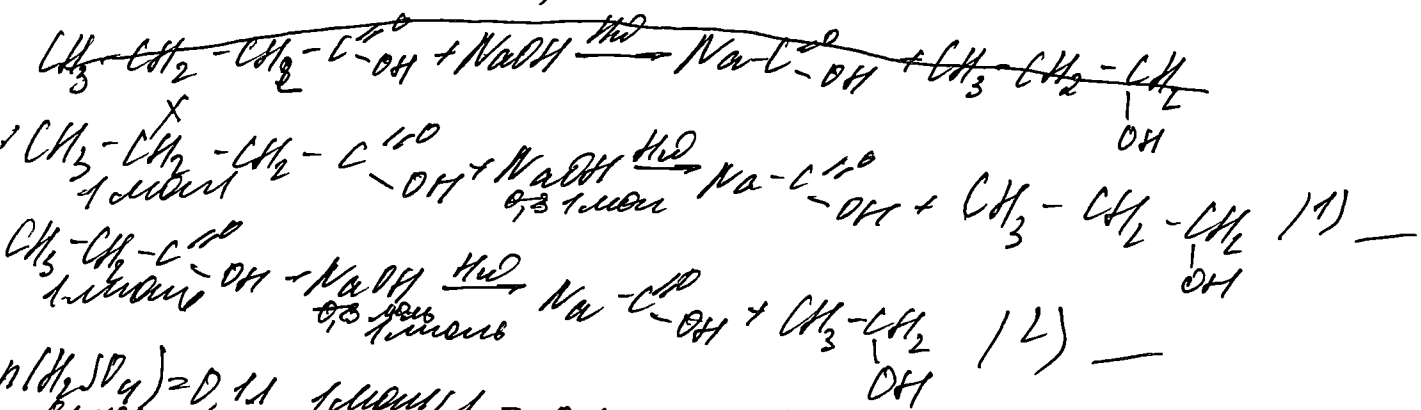 CH3-CH2-CH2-C=O-OH + NaOH H2O→ Na-C=O-OH + CH3-CH2-CH2
OH
x
CH3-CH2-CH2-C=O-OH + NaOH H2O→ Na-C=O-OH + CH3-CH2-CH2 (1) —
1 моль 1 моль OH
CH3-CH2-C=O-OH + NaOH H2O→ Na-C=O-OH + CH3-CH2 (2) —
1 моль 0,3 моль OH
1 моль
n(H2SO4)=0,1л